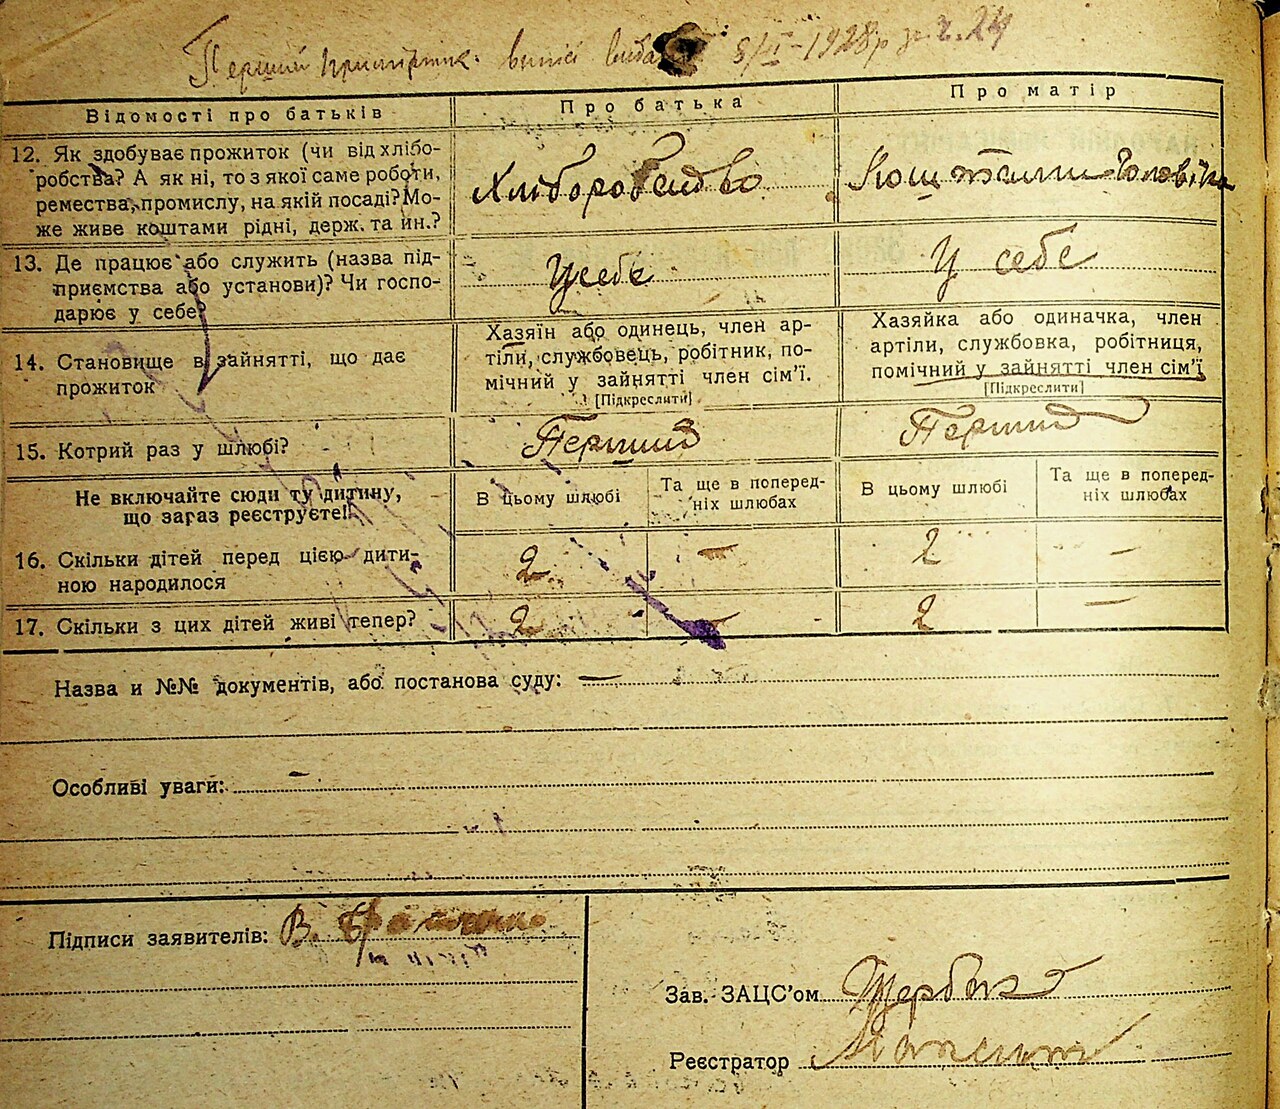 Перший примірник виписі видан 8/II-1928р за ч. 24
Відомості про батьків
Про батька
Про матір
12. Як здобуває прожиток (чи від хлібо-
робства? А як ні, то з якої саме роботи,
ремества, промислу, на якій посаді? Мо-
же живе коштами рідні, держ. та ин.?
Хліборобство
Кощтами чоловіка
13. Де працює або служить (назва під-
приємства або установи)? Чи госпо-
дарює у себе?
У себе
У себе
14. Становище в зайнятті, що дає
прожиток
Хазяїн або одинець, член ар-
тіли, службовець, робітник, по-
мічний у зайнятті член сім'ї.
[Підкреслити]
Хазяйка або одиначка, член
артіли, службовка, робітниця,
помічний у зайнятті член сім'ї
[Підкреслити]
15. Котрий раз у шлюбі?
Перший
Перший
Не включайте сюди ту дитину,
що зараз реєструєте!
В цьому шлюбі
Та ще в поперед-
ніх шлюбах
В цьому шлюбі
Та ще в поперед-
ніх шлюбах
16. Скільки дітей перед цією дити-
ною народилося
2
—
2
—
17. Скільки з цих дітей живі тепер?
2
—
2
—
Назва и №№ документів, або постанова суду: —
Особливі уваги: —
Підписи заявителів: В.
Зав. ЗАЦС'ом Щербина
Реєстратор